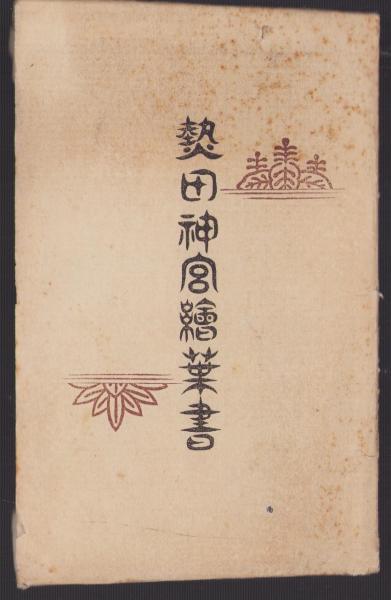 熱田神宮繪葉書